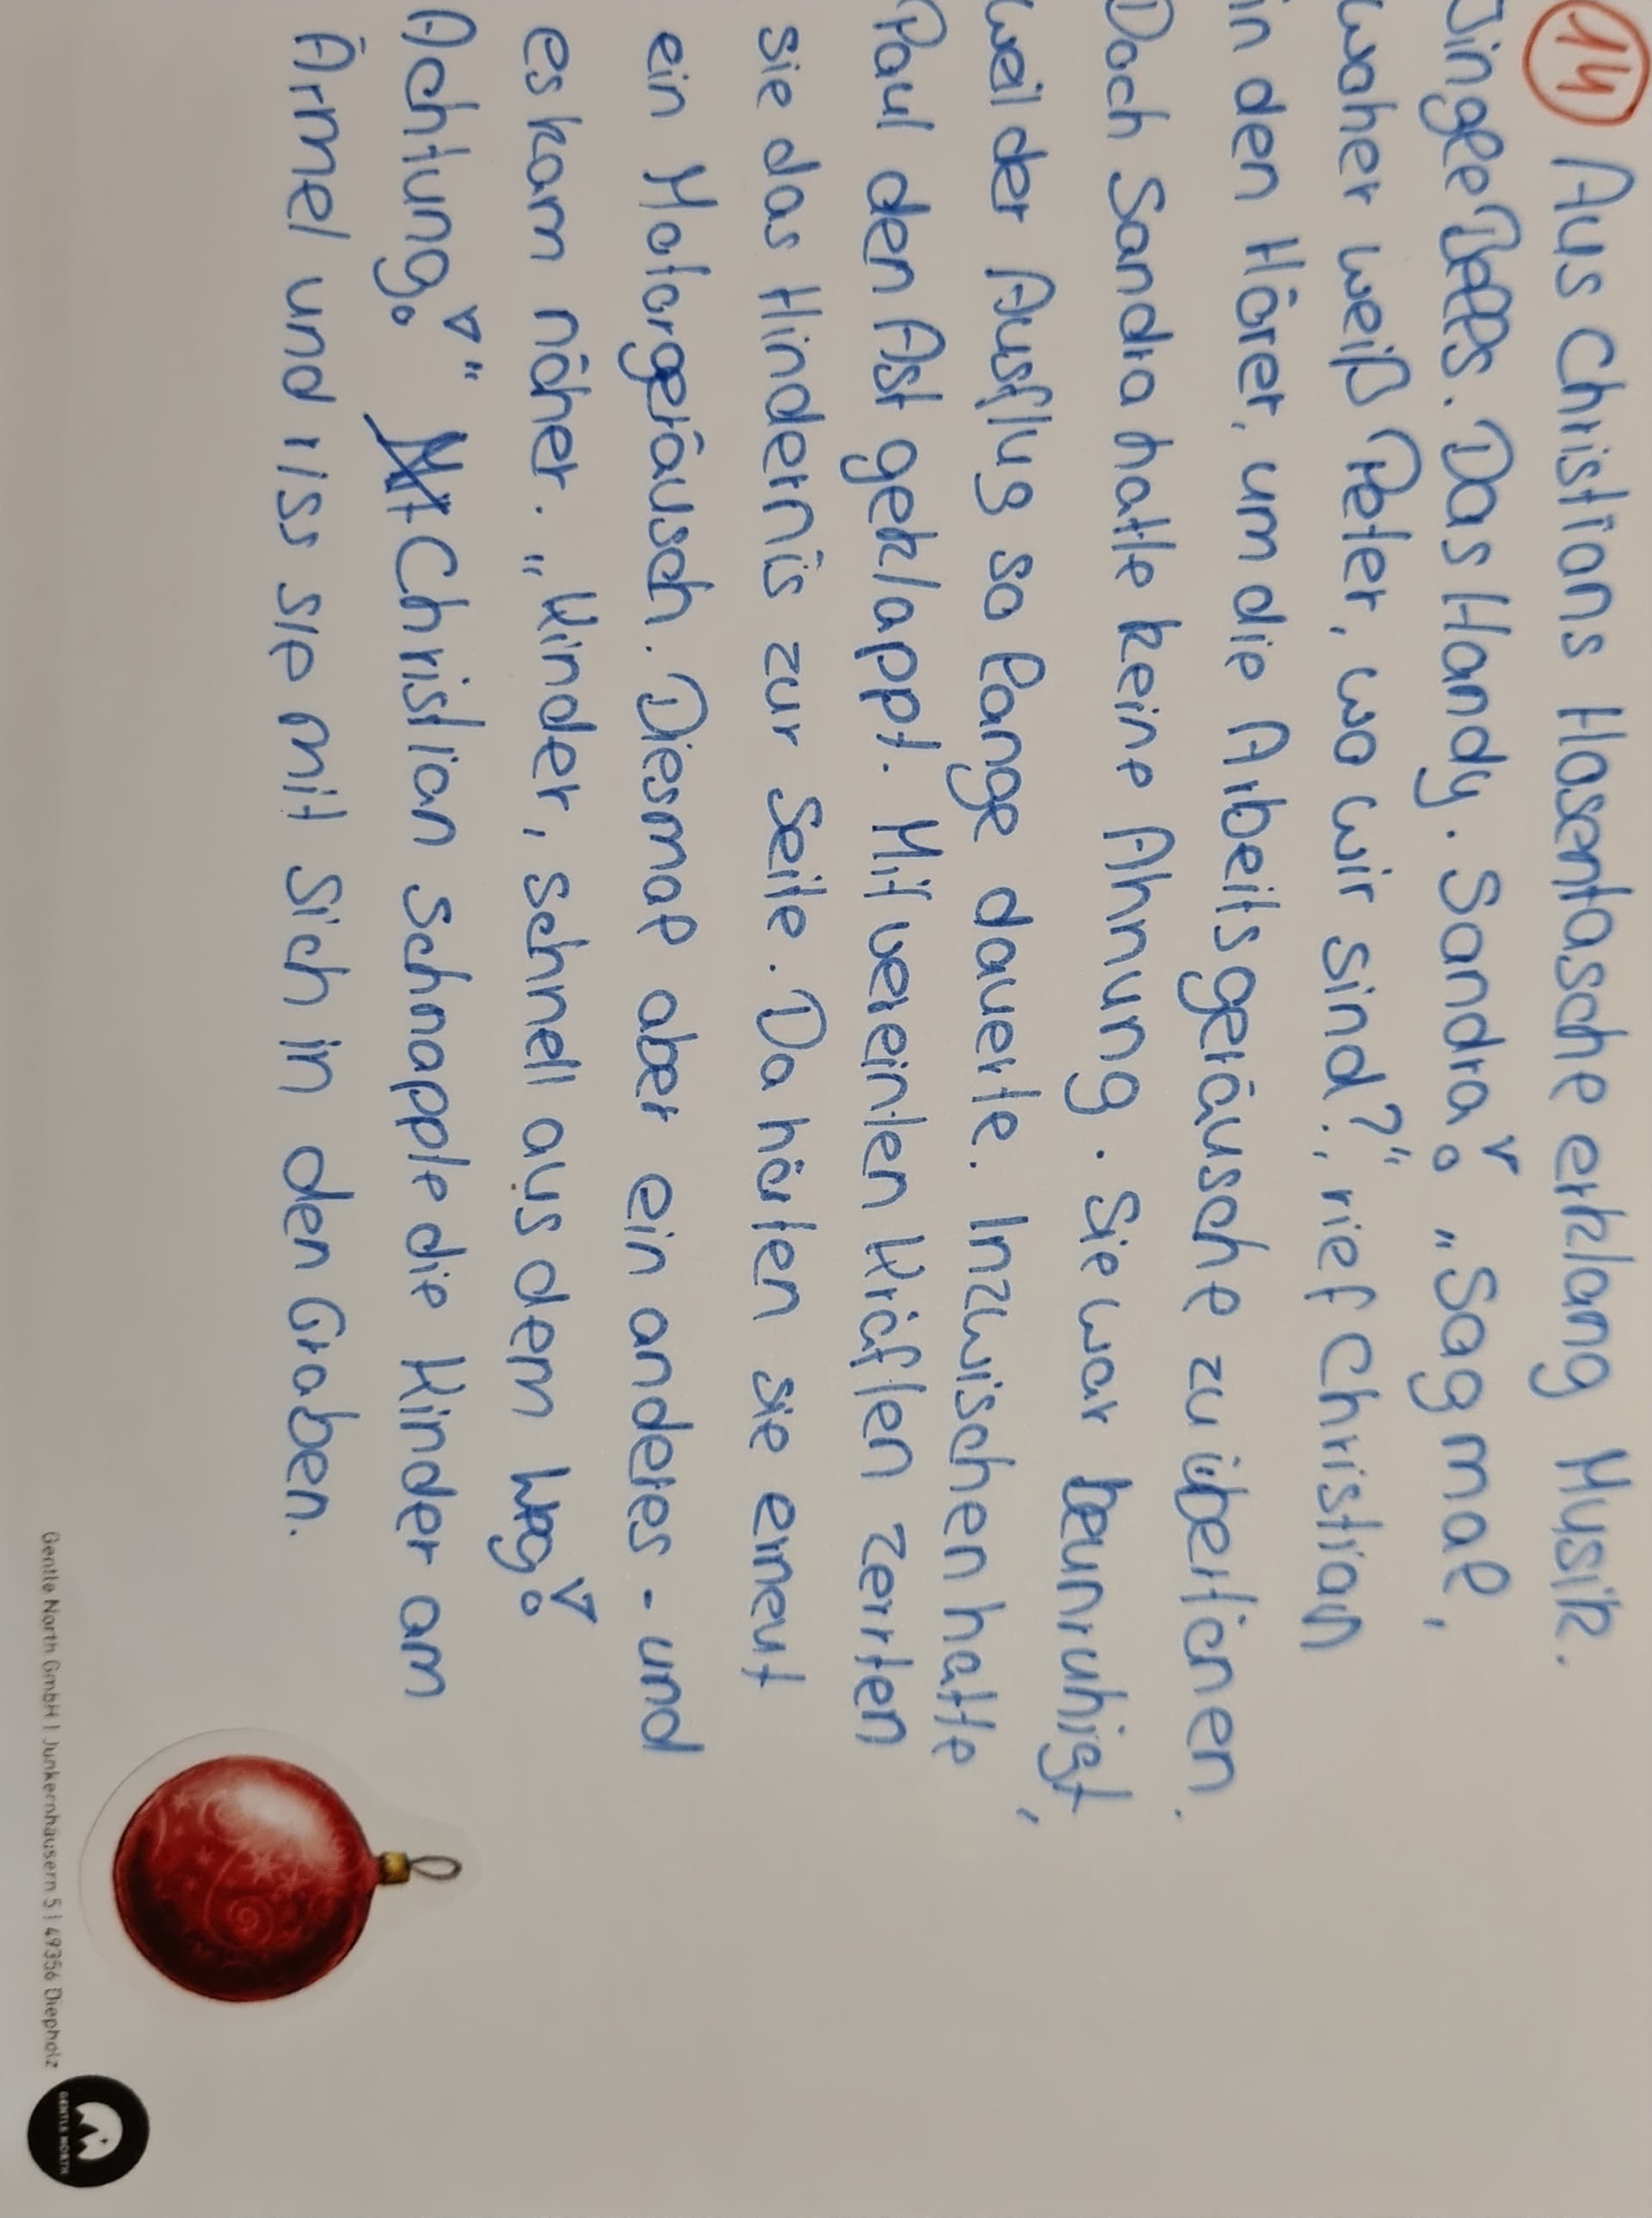 14 Aus Christians Hosentasche erklang Musik.
Jingle Bells. Das Handy. Sandra! „Sag mal,
woher weiß Peter, wo wir sind?", rief Christian
in den Hörer, um die Arbeitsgeräusche zu übertönen.
Doch Sandra hatte keine Ahnung. Sie war beunruhigt,
weil der Ausflug so lange dauerte. Inzwischen hatte
Paul den Ast gekappt. Mit vereinten Kräften zerrten
sie das Hindernis zur Seite. Da hörten sie erneut
ein Motorgeräusch. Diesmal aber ein anderes - und
es kam näher. „Kinder, schnell aus dem Weg!
Achtung!" Christian schnappte die Kinder am
Ärmel und riss sie mit sich in den Graben.
Gentle North GmbH | Junkernhäusern 5 | 49356 Diepholz
GENTLE NORTH